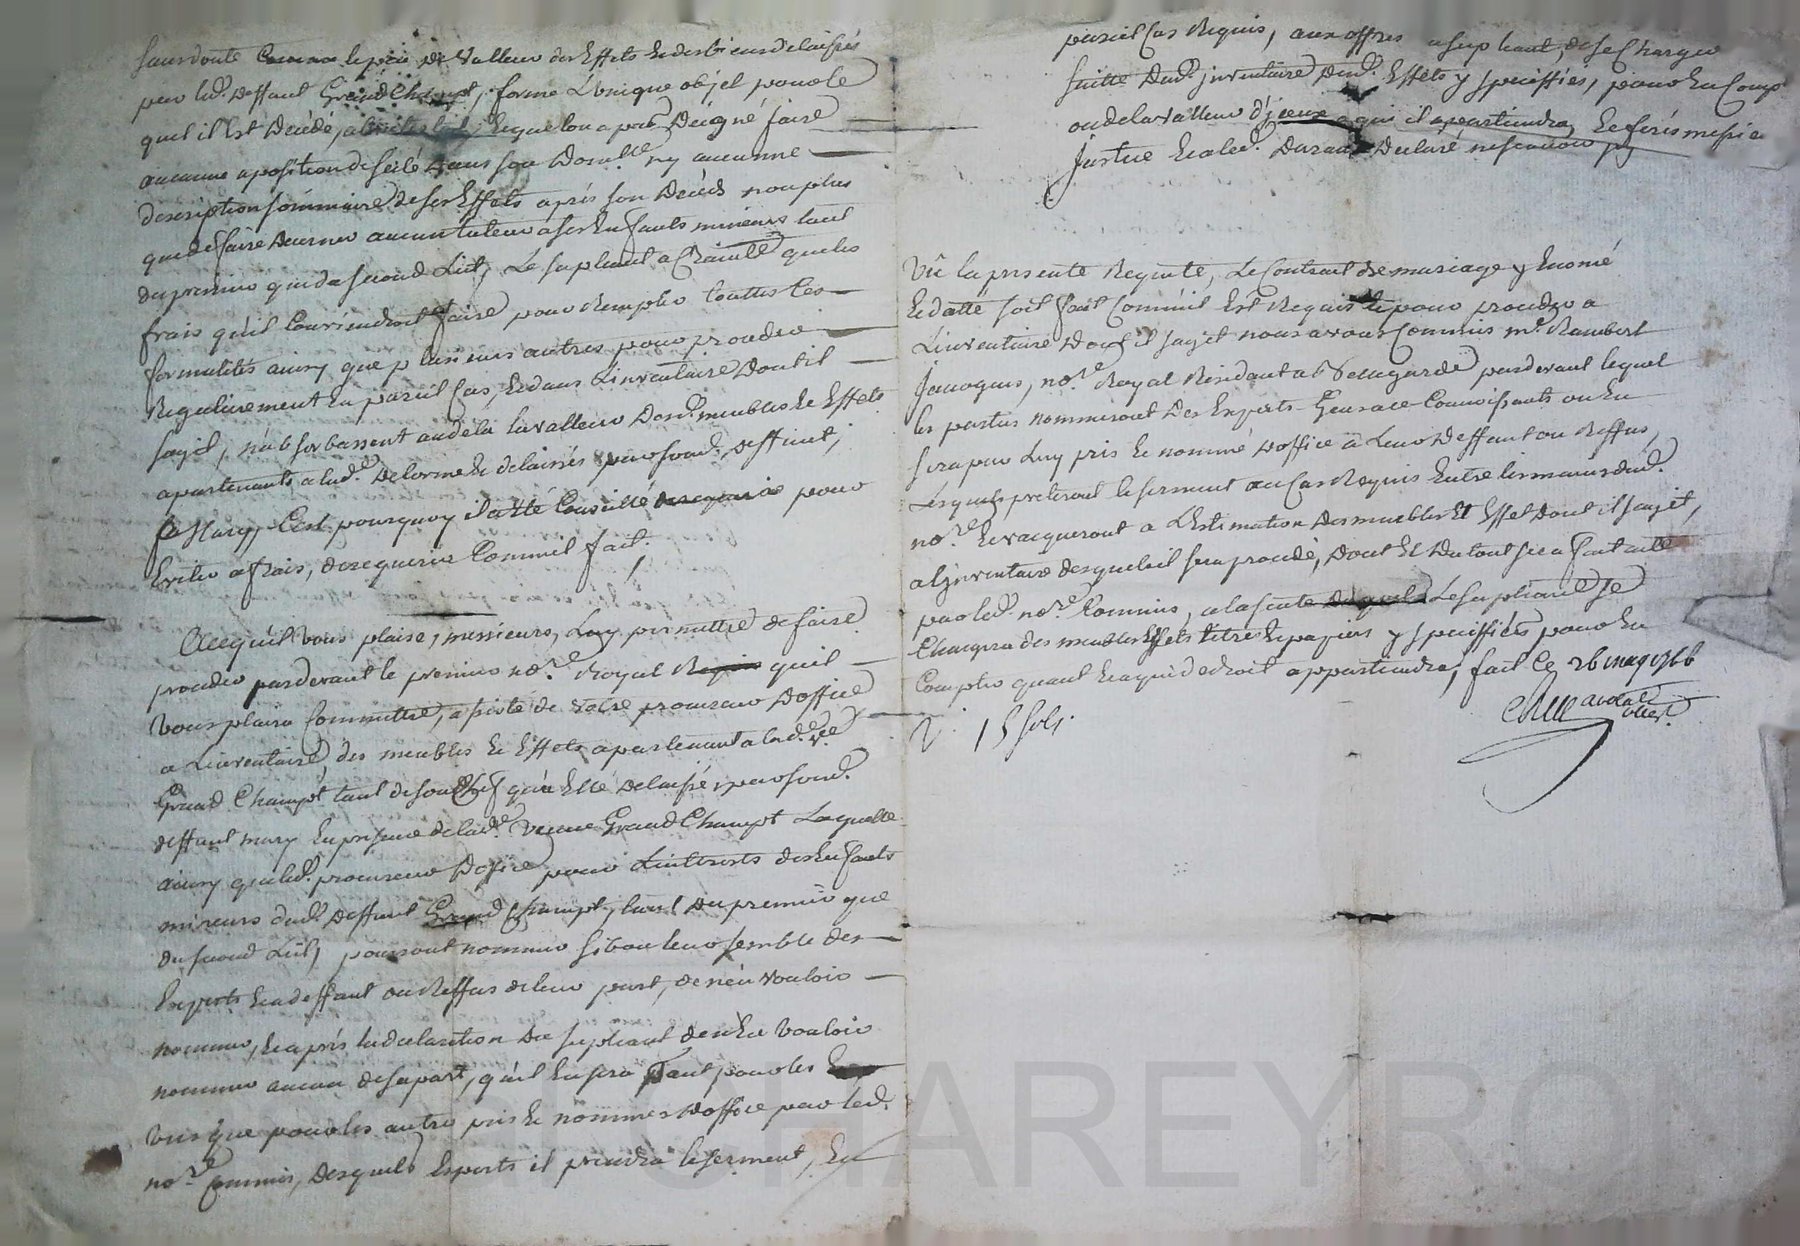 sans doute Comme le peu de Valleur des Effets et des biens delaissés
par led. deffunt Grand Champt, forme L'unique objet pour le
quel il Est Decedé, lequel on a pas Deigné faire
aucune aposition de sçelé dans son Domlle ny aucunne
description sommaire de ses Effets après son Décés non plus
que de faire decerner aucun tuteur a ses Enfants mineurs tant
du premier que du second Lict, Le supliant a Crainte que les
frais qu'il Conviendroit faire pour Remplir touttes les
formalités ainsy que plusieurs autres pour proceder
Regulierement En pareil Cas, Et dans L'inventaire Dont il
sagit, n'absorbassent audela la valleur Desd. meubles Et Effets
apartenants a lad.e Delorme Et delaissés par sond. deffunt,
Mary, C'est pourquoy il a été Conseillé pour
Eviter a frais, de requerir Comm'il fait,
Acequ'il Vous plaise, messieurs, Luy permettre de faire
proceder pardevant le premier no.re Royal qu'il
Vous plaira Commettre, a pisté de votre procureur Doffice
a L'inventaire, des meubles Et Effets apartenant a lad.e v.ve
Grand Champt tant de son Chef qu'a Elle delaissé par sond.
deffunt mary En presence de lad.e Veuve Grand Champt Laquelle
ainsy que led. procureur Doffice pour L'interets des Enfants
mineurs dud. Deffunt Grand Champt, tant Du premier que
du second Lict, pourront nommer si bon leur semble des
Experts Et a deffaut ou Reffus de leur part, de n'en vouloir
nommer, Et après la declaration Du supliant de n'En Vouloir
nommer aucun de sa part, qu'il En sera Tant pour les
Uns que pour les autre pris Et nommes Doffice par led.
no.re Commis, Desquels Experts il prendra le serment, En
pareil Cas Requis, aux offres du supliant, de se Charger
suitte Dud. inventaire Dud. Effets y speciffiés, pour En Comp
ou de la valleur d'jceux a qui il apartiendra, Et ferés
Justice Et a led. Durand Declaré ne sçavoir
Vû la presente Requete, Le Contract de mariage y Enoncé
Et datté soit fait Comm'il Est Requis Et pour proceder a
L'inventaire Dont il sagit nous avons Commis m.e Rambert
Jamogeus, no.re Royal Residant a S Sauegarde pardevant lequel
les parties nommeront Des Experts Gens a ce Connoissants ou En
sera par Luy pris Et nommé Doffice a Leur Deffaut ou Reffus,
Lesquels preteront le serment au Cas Requis Entre les mains dud.
no.re Et vacqueront a L'Estimation Des meubles Et Effet Dont il sagit,
a Linventaire desquels il sera procedé, Dont Et Du tout sera fait acte
par led. no.re Commis, a la suite Le supliant se
Chargera des meubles Effets titres Et papiers y speciffiés pour En
Compter quant Et a qui de droit appartiendra, fait Ce 26 may 1766
V. 15 sols.